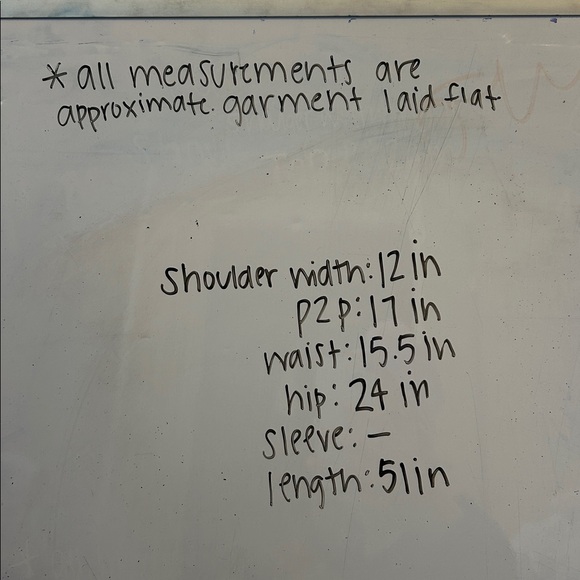 * all measurements are
approximate. garment laid flat
shoulder width: 12 in
p2p: 17 in
waist: 15.5 in
hip: 24 in
sleeve: –
length: 51 in